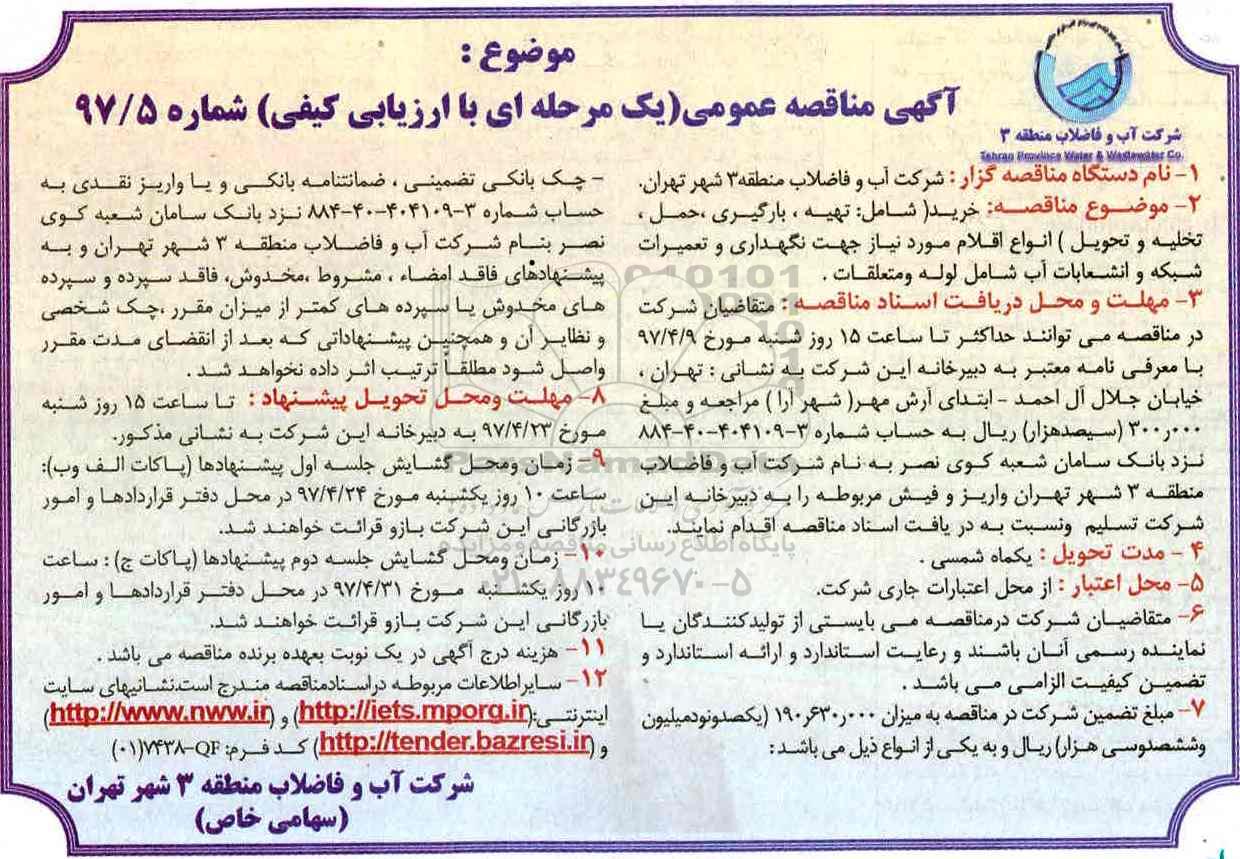 موضوع :
آگهی مناقصه عمومی(یک مرحله ای با ارزیابی کیفی) شماره ۹۷/۵
شرکت آب و فاضلاب منطقه ۳
Tehran Province Water & Wastewater Co.
۱- نام دستگاه مناقصه گزار : شرکت آب و فاضلاب منطقه۳ شهر تهران.
۲- موضوع مناقصه: خرید( شامل: تهیه ، بارگیری ،حمل ،
تخلیه و تحویل ) انواع اقلام مورد نیاز جهت نگهداری و تعمیرات
شبکه و انشعابات آب شامل لوله ومتعلقات .
۳- مهلت و محل دریافت اسناد مناقصه : متقاضیان شرکت
در مناقصه می توانند حداکثر تا ساعت ۱۵ روز شنبه مورخ ۹۷/۴/۹
با معرفی نامه معتبر به دبیرخانه این شرکت به نشانی : تهران ،
خیابان جلال آل احمد - ابتدای آرش مهر( شهر آرا ) مراجعه و مبلغ
۳۰۰ر۰۰۰ (سیصدهزار) ریال به حساب شماره ۳-۴۰۴۱۰۹-۴۰-۸۸۴
نزد بانک سامان شعبه کوی نصر به نام شرکت آب و فاضلاب
منطقه ۳ شهر تهران واریز و فیش مربوطه را به دبیرخانه این
شرکت تسلیم ونسبت به در یافت اسناد مناقصه اقدام نمایند.
۴ - مدت تحویل : یکماه شمسی .
۵- محل اعتبار : از محل اعتبارات جاری شرکت.
۶- متقاضیان شرکت درمناقصه می بایستی از تولیدکنندگان یا
نماینده رسمی آنان باشند و رعایت استاندارد و ارائه استاندارد و
تضمین کیفیت الزامی می باشد .
۷- مبلغ تضمین شرکت در مناقصه به میزان ۱۹۰ر۶۳۰ر۰۰۰ (یکصدونودمیلیون
وششصدوسی هزار) ریال و به یکی از انواع ذیل می باشد :
- چک بانکی تضمینی ، ضمانتنامه بانکی و یا واریز نقدی به
حساب شماره ۳-۴۰۴۱۰۹-۴۰-۸۸۴ نزد بانک سامان شعبه کوی
نصر بنام شرکت آب و فاضلاب منطقه ۳ شهر تهران و به
پیشنهادهای فاقد امضاء ، مشروط ،مخدوش، فاقد سپرده و سپرده
های مخدوش یا سپرده های کمتر از میزان مقرر ،چک شخصی
و نظایر آن و همچنین پیشنهاداتی که بعد از انقضای مدت مقرر
واصل شود مطلقاً ترتیب اثر داده نخواهد شد .
۸- مهلت ومحل تحویل پیشنهاد : تا ساعت ۱۵ روز شنبه
مورخ ۹۷/۴/۲۳ به دبیرخانه این شرکت به نشانی مذکور.
۹- زمان ومحل گشایش جلسه اول پیشنهادها (پاکات الف وب):
ساعت ۱۰ روز یکشنبه مورخ ۹۷/۴/۲۴ در محل دفتر قراردادها و امور
بازرگانی این شرکت بازو قرائت خواهند شد.
۱۰- زمان ومحل گشایش جلسه دوم پیشنهادها (پاکات ج) : ساعت
۱۰ روز یکشنبه مورخ ۹۷/۴/۳۱ در محل دفتر قراردادها و امور
بازرگانی این شرکت بازو قرائت خواهند شد.
۱۱- هزینه درج آگهی در یک نوبت بعهده برنده مناقصه می باشد .
۱۲- سایراطلاعات مربوطه دراسنادمناقصه مندرج است.نشانیهای سایت
اینترنتی:(http://iets.mporg.ir) و (http://www.nww.ir)
و (http://tender.bazresi.ir) کد فرم: QF-۷۴۳۸(۰۱)
شرکت آب و فاضلاب منطقه ۳ شهر تهران
(سهامی خاص)
ParsNamadData
پایگاه اطلاع رسانی مناقصه و مزایده
۰۲۱-۸۸۳۴۹۶۷۰-۵